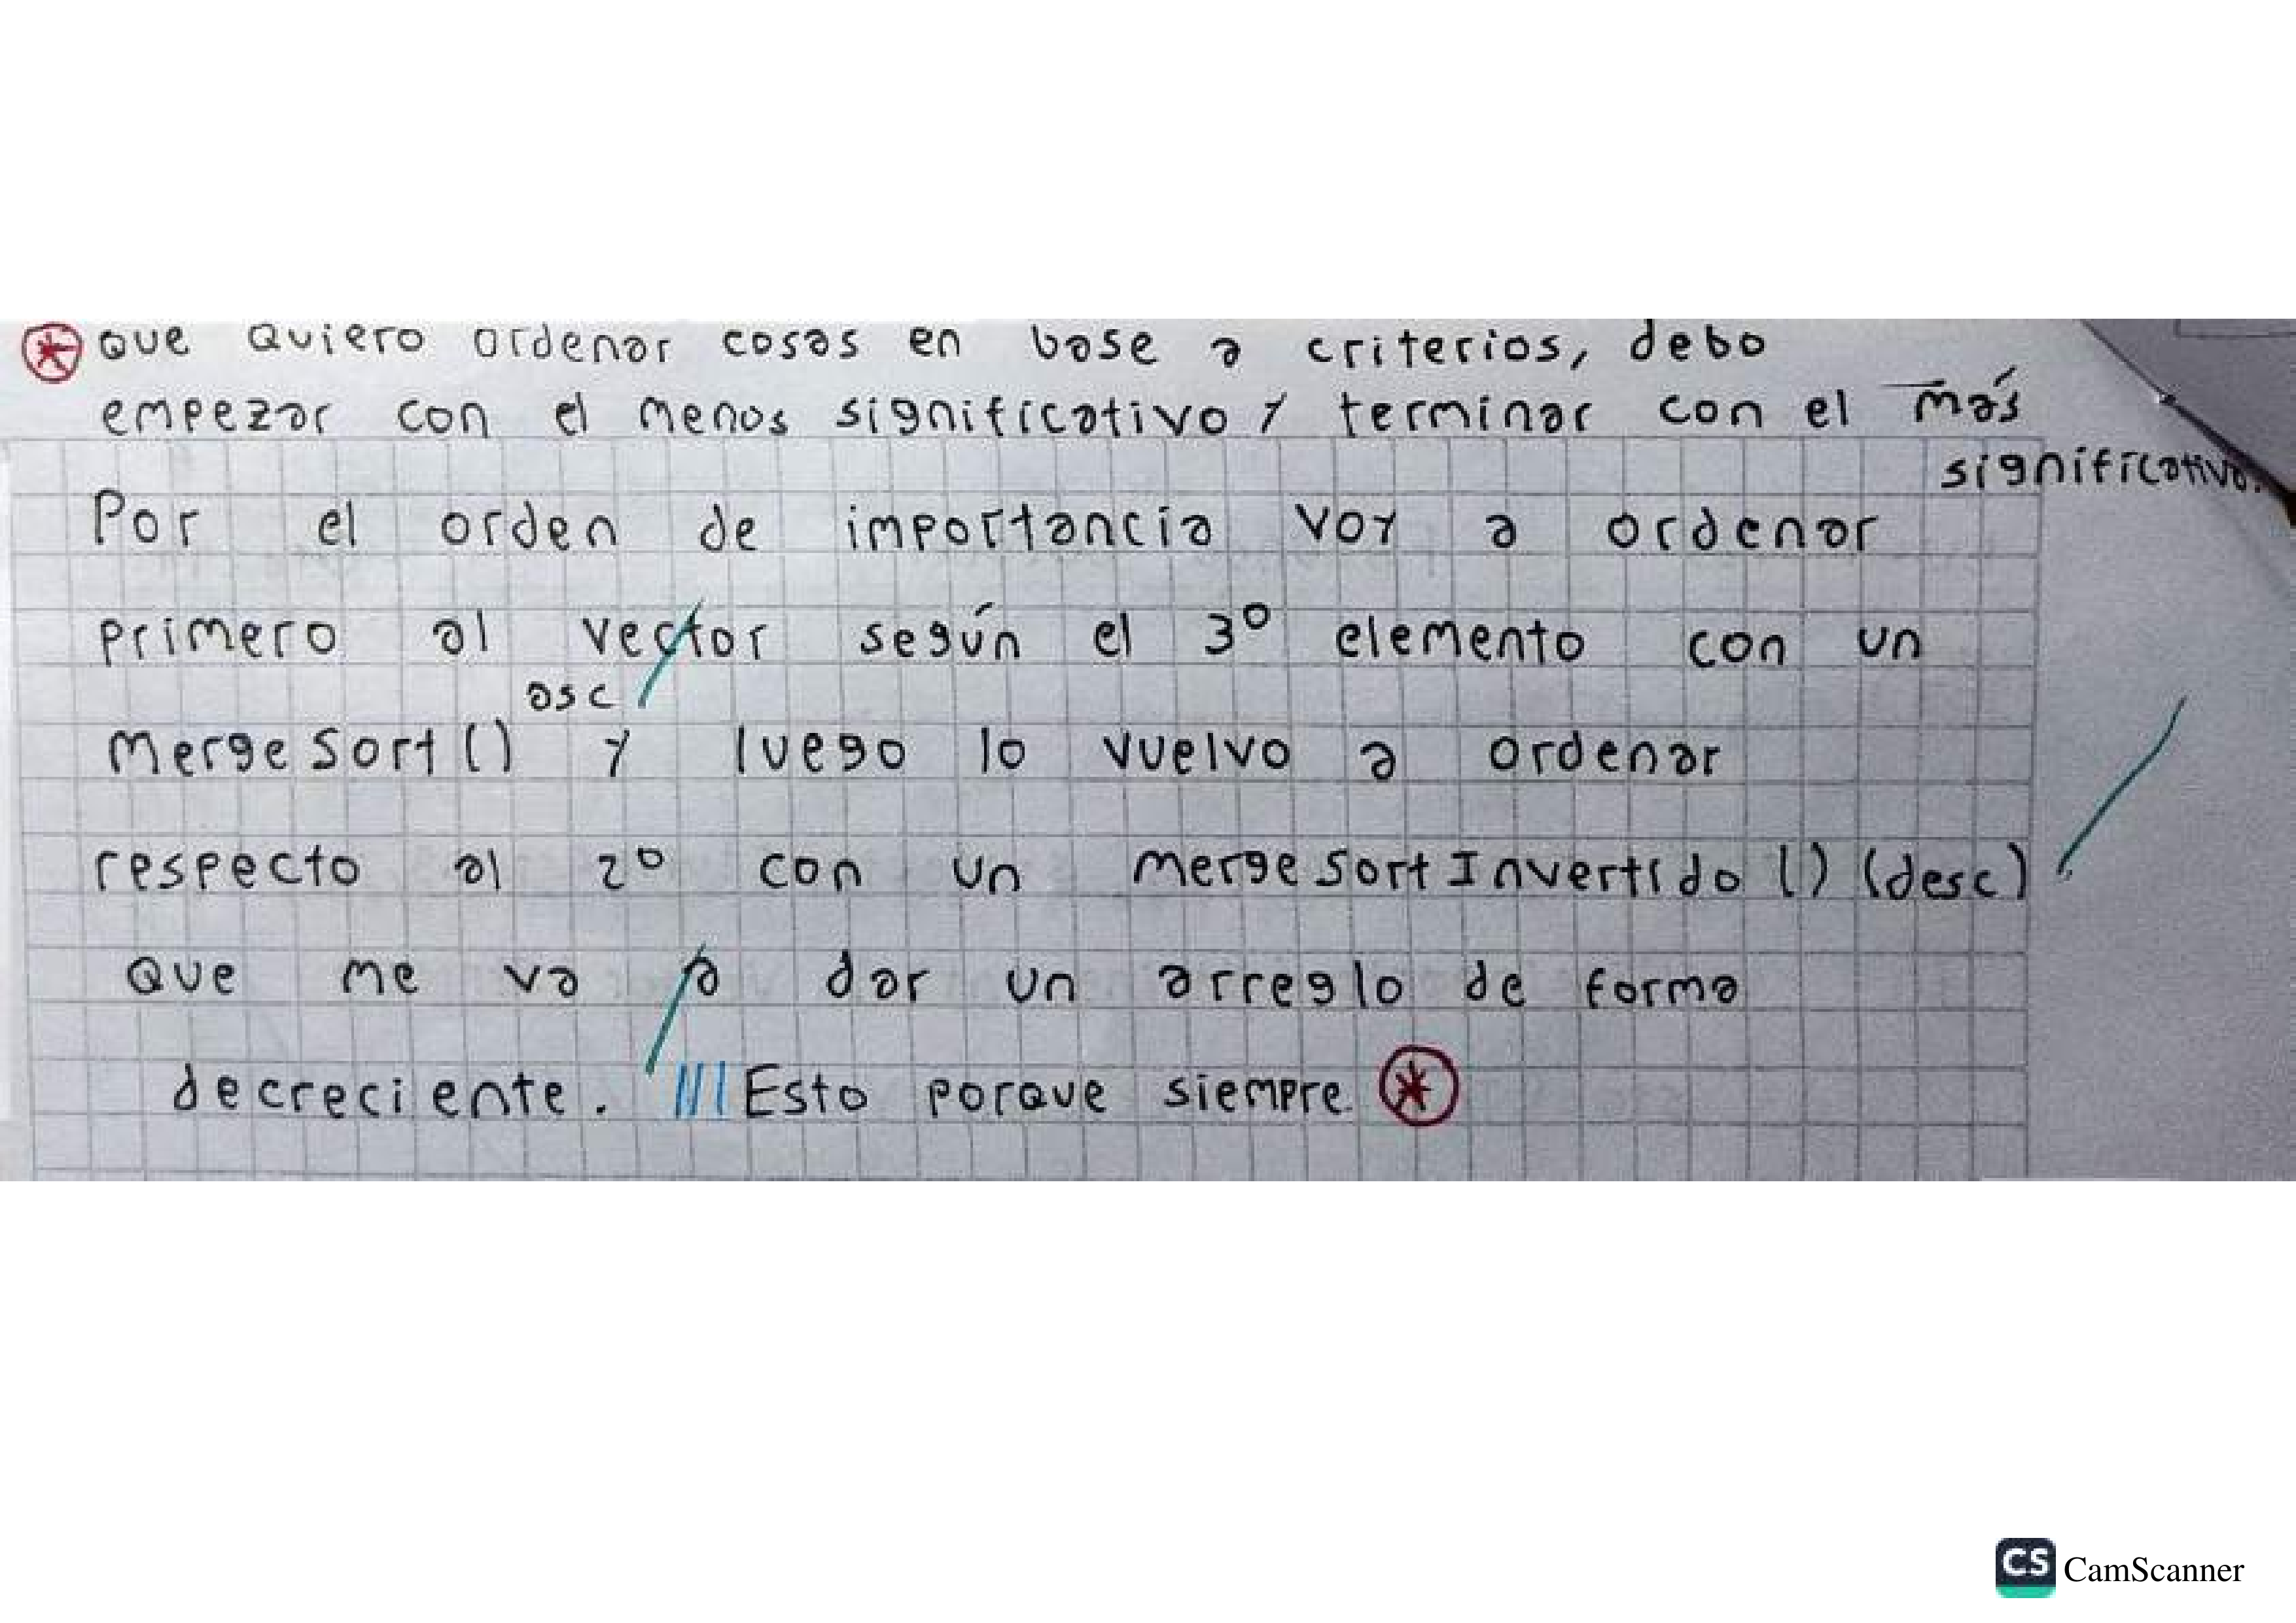 * que quiero ordenar cosas en base a criterios, debo
empezar con el menos significativo y terminar con el más
significativo.
Por el orden de importancia voy a ordenar
primero al vector según el 3º elemento con un
asc
MergeSort() y luego lo vuelvo a ordenar
respecto al 2º con un mergeSortInvertido() (desc)
que me va a dar un arreglo de forma
decreciente. /// Esto porque siempre *
CS CamScanner